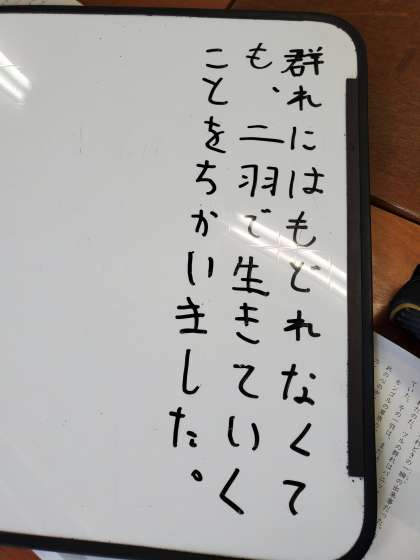 群れにはもどれなくて
も、二羽で生きていく
ことをちかいました。